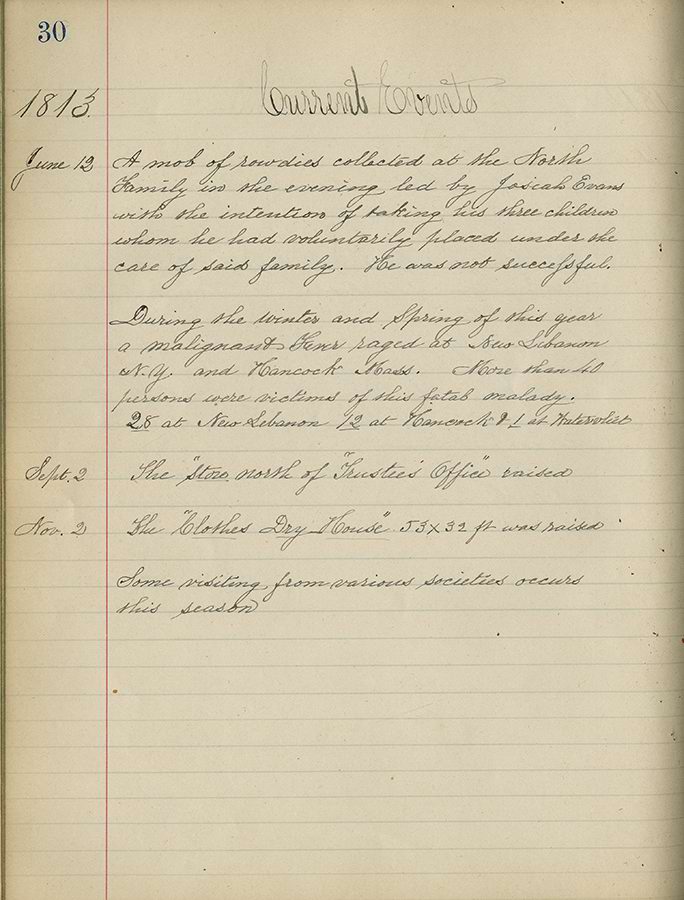 30
Current Events
1813.
June 12 A mob of rowdies collected at the North
Family in the evening led by Josiah Evans
with the intention of taking his three children
whom he had voluntarily placed under the
care of said family. He was not successful.
During the winter and Spring of this year
a malignant Fever raged at New Lebanon
N.Y. and Hancock Mass. More than 40
persons were victims of this fatal malady.
28 at New Lebanon 12 at Hancock & 1 at Watervliet
Sept. 2 The "Store north of "Trustee's Office" raised
Nov. 2 The "Clothes Dry House" 53x32 ft was raised
Some visiting from various societies occurs
this season